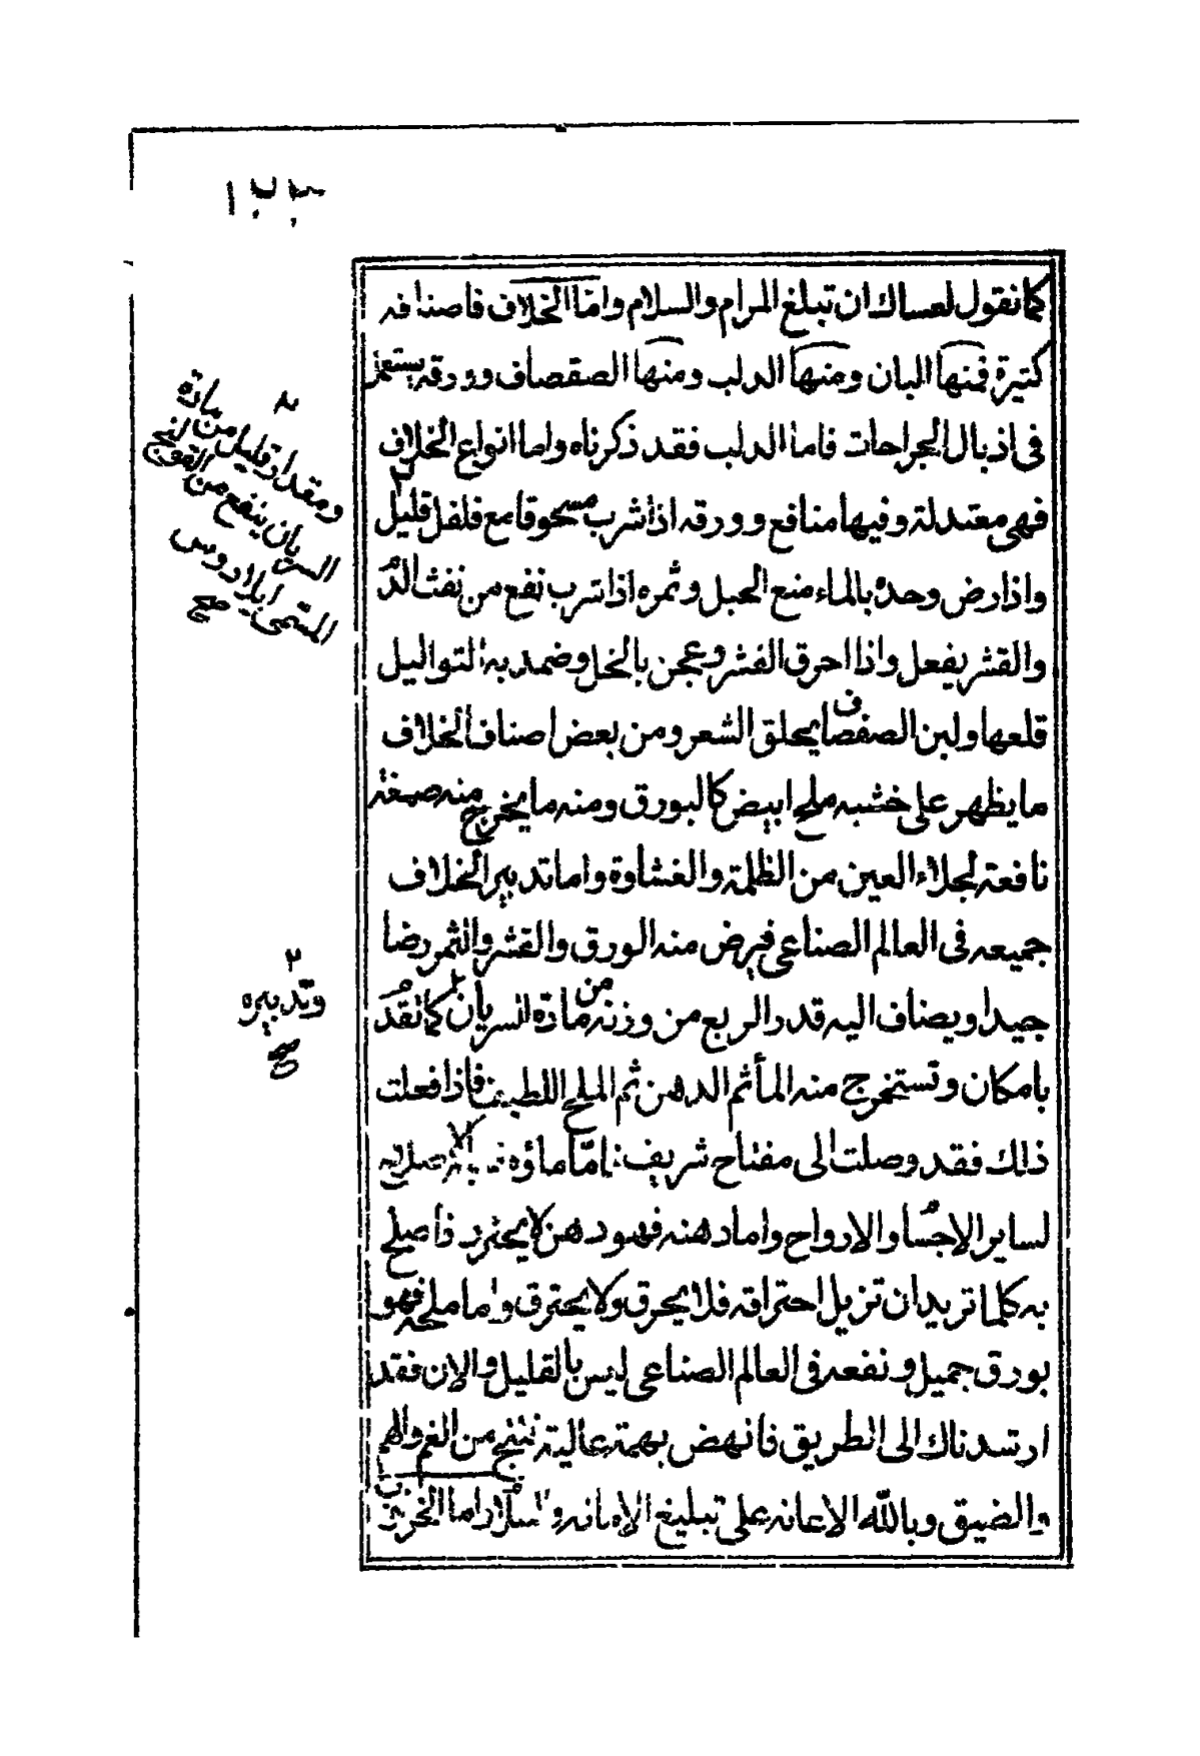 ١٢٣
كما نقول لعساك ان تبلغ المرام والسلام واما الخلاف فاصنافه
كثيرة فمنها البان ومنها الدلب ومنها الصفصاف وورقه يستعمل
فى اذبال الجراحات فاما الدلب فقد ذكرناه واما انواع الخلاف
فهى معتدلة وفيها منافع وورقه اذا شرب مسحوقا مع فلفل قليل
واذا رض وحده بالماء منع الحبل وثمره اذا شرب نفع من نفث الدم
والقشر يفعل واذا احرق القشر وعجن بالخل وضمد به التواليل
قلعها ولبن الصفصاف يحلق الشعر ومن بعض اصناف الخلاف
ما يظهر على خشبه ملح ابيض كالبورق ومنه ما يخرج منه صمغة
نافعة لجلاء العين من الظلمة والغشاوة واما تدبير الخلاف
جميعه فى العالم الصناعى فيرض منه الورق والقشر والثمر رضا
جيدا ويضاف اليه قدر الربع من وزنه من مادة السريان كما تقدم
بامكان وتستخرج منه الماء ثم الدهن ثم الملح اللطيف فاذا فعلت
ذلك فقد وصلت الى مفتاح شريف اما ماؤه
لساير الاجسام والارواح واما دهنه فهو دهن لا يحترق فاصلح
به كلما تريد ان تزيل احتراقه فلا يحرق ولا يحترق واما ملحه فهو
بورق جميل ونفعه فى العالم الصناعى ليس بالقليل والان فقد
ارشدناك الى الطريق فانهض بهمة عالية تنتج من الغم والهم
والضيق وبالله الاعانه على تبليغ الامانه والسلام اما الخرنوب
٢
ومقدار قليل من مادة
السريان ينفع من القولنج
المسمى ايلاوس
صح
٢
وتدبيره
صح